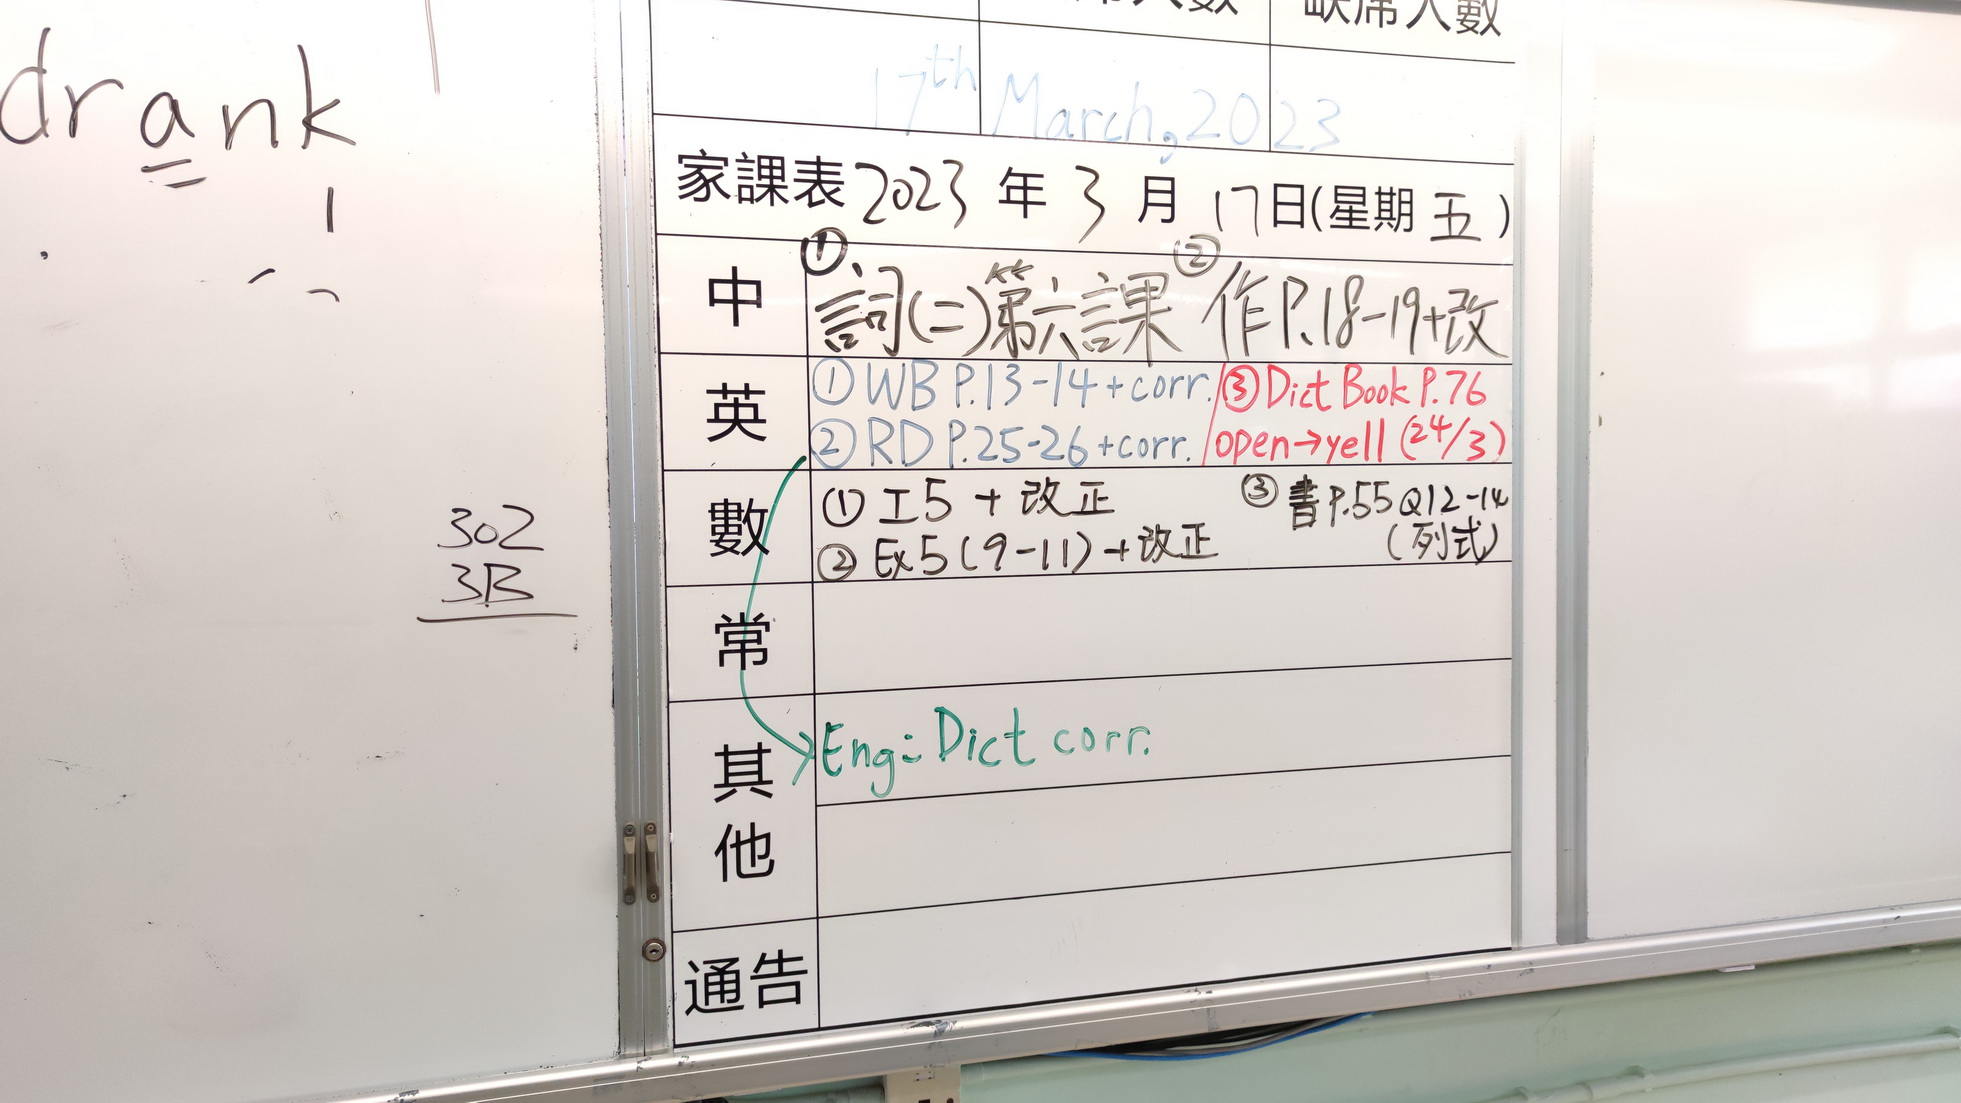 drank
302
3B
席人數 缺席人數
17th March, 2023
家課表 2023 年 3 月 17日(星期 五 )
中 ① 詞(二)第六課 ② 作P.18-19+改
英 ① WB P.13-14+corr. ③ Dict Book P.76
② RD P.25-26+corr. open→yell (24/3)
數 ① 工5 + 改正 ③ 書P.55 Q12-14
② Ex5(9-11)+改正 (列式)
常
其他 Eng: Dict corr.
通告